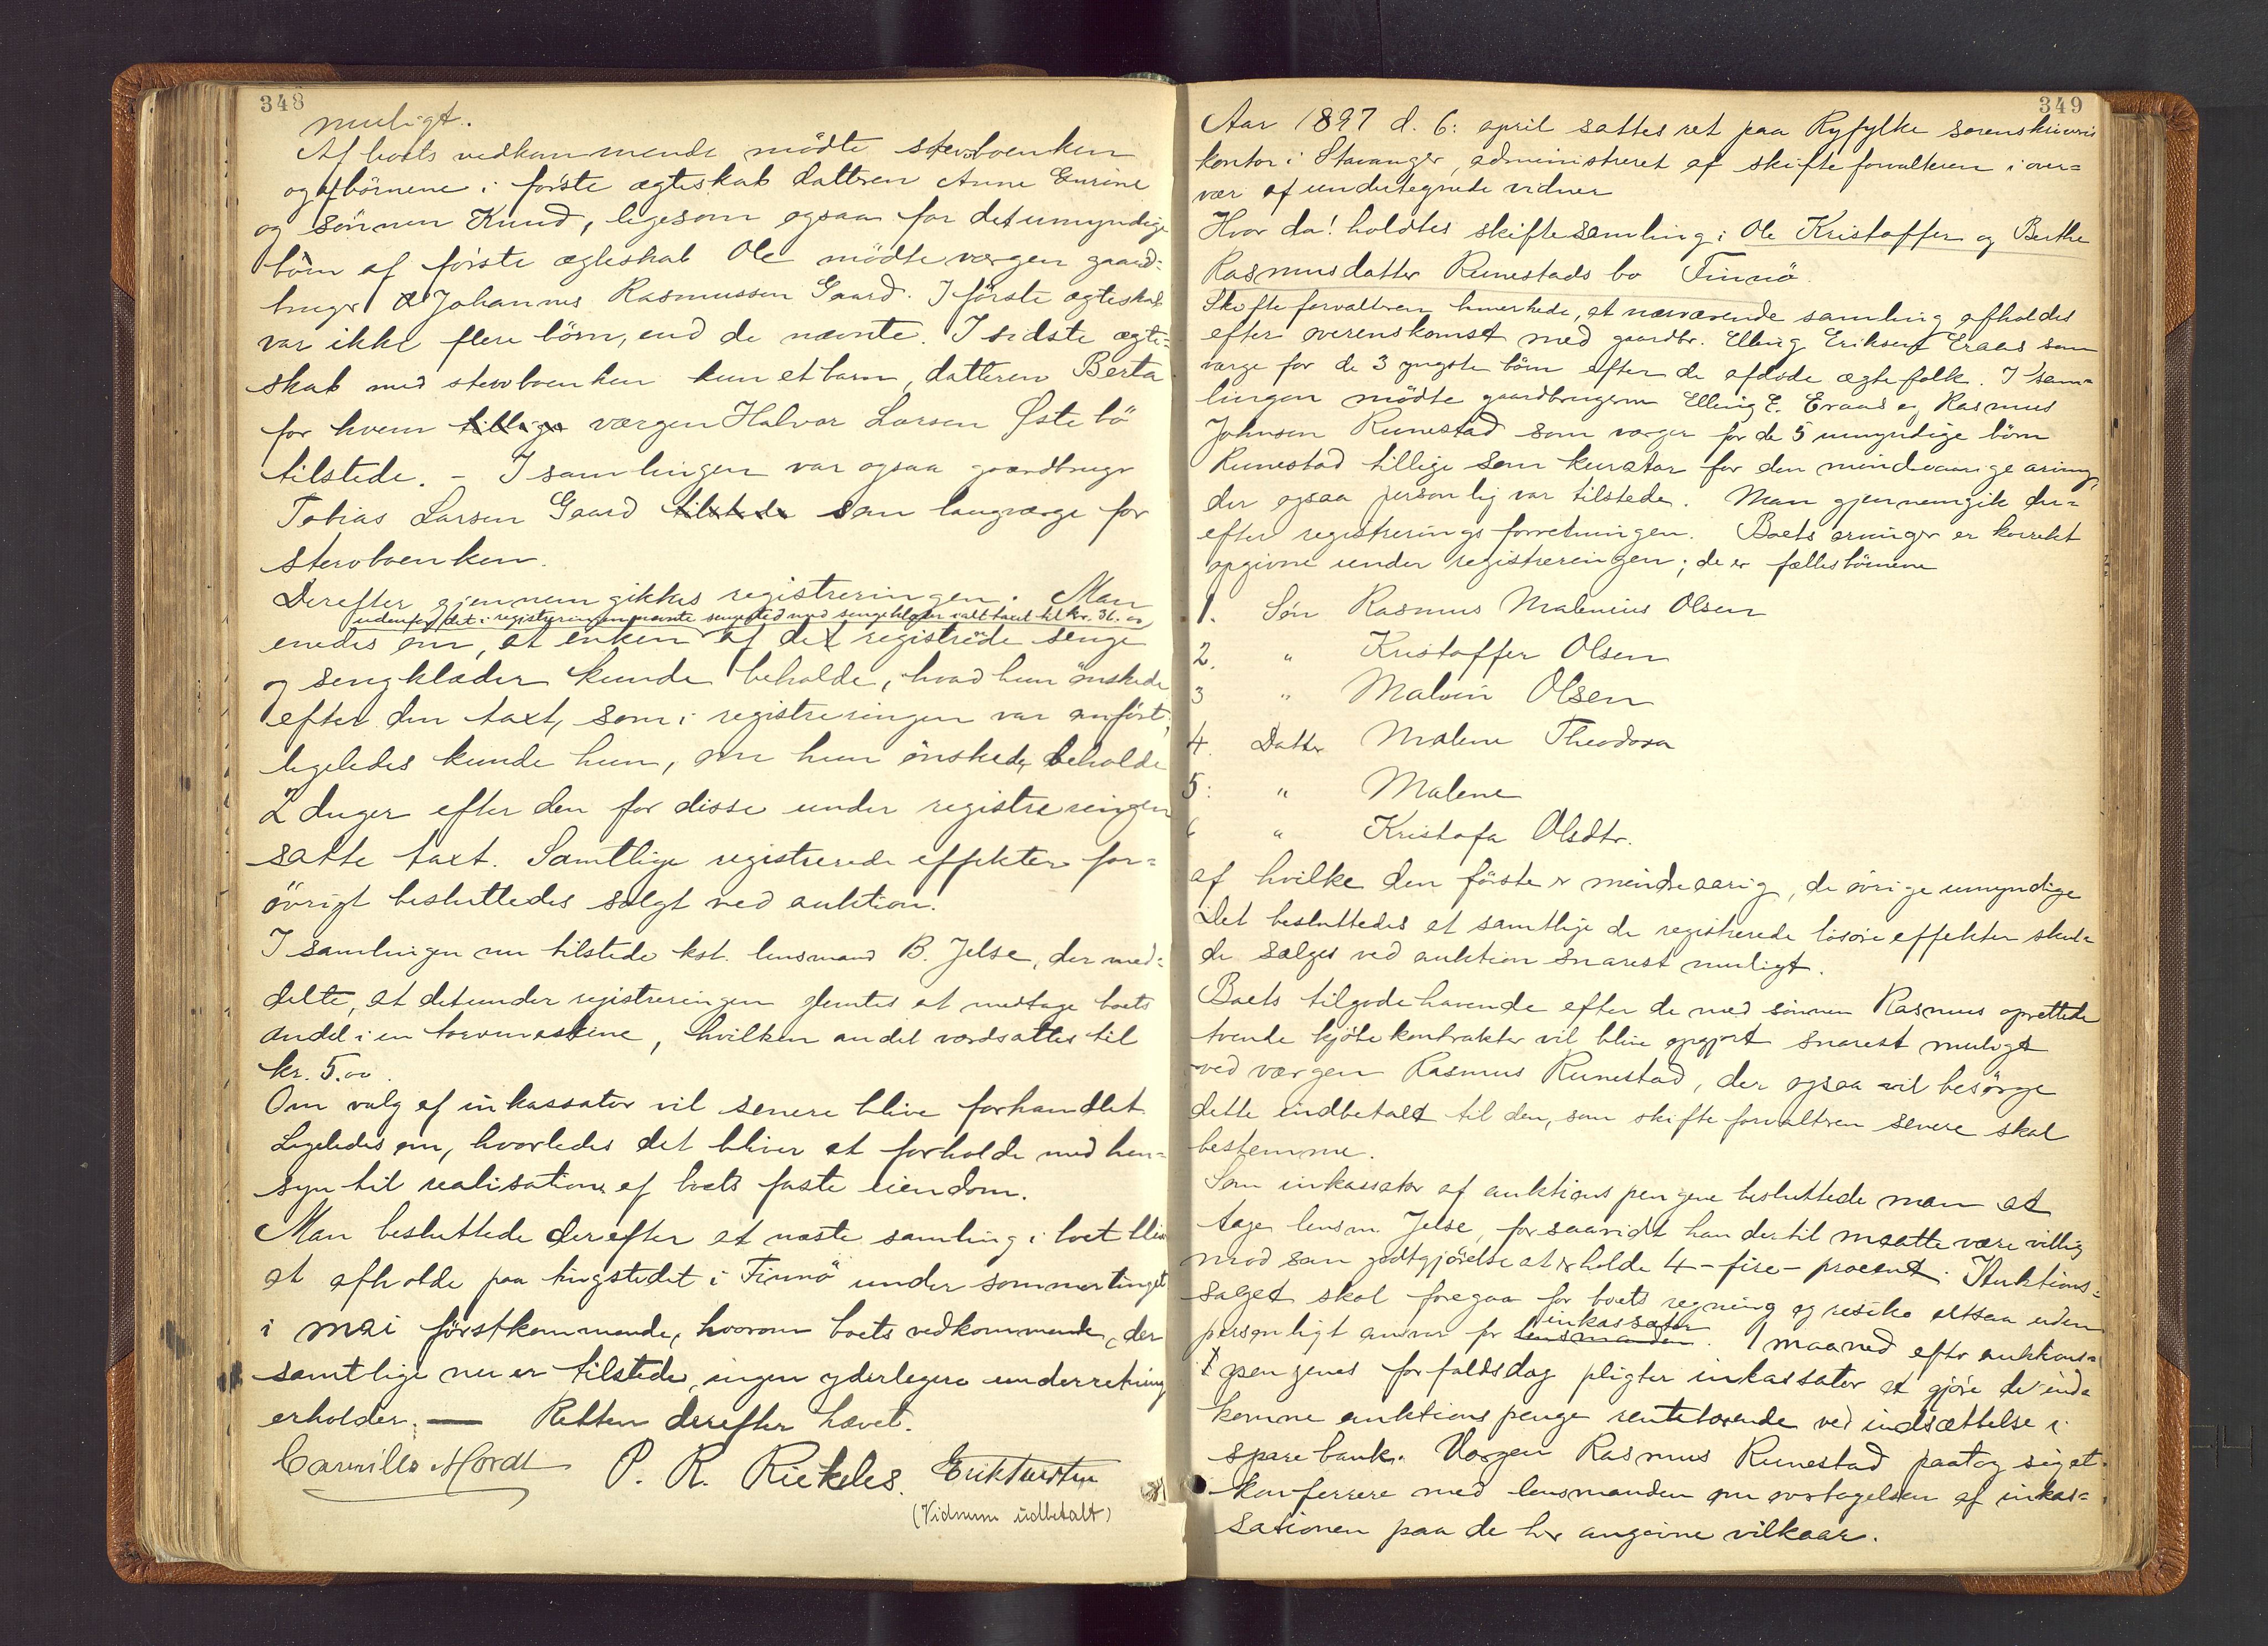 348
muligt.
Af boets vedkommende mödte stervboenken
og af börnene i förste ægteskab datteren Anne Enrine
og sönnen Knud, ligesom ogsaa for det umyndige
börn af förste ægteskab Ole mödte værgen gaard-
bruger Johannes Rasmussen Gaard. I förste ægteskab
var ikke flere börn, end de nævnte. I sidste ægte-
skab med stervboenken kun et barn, datteren Berta
for hvem tillige værgen Halvor Larsen Østebö
tilstede. – I samlingen var ogsaa gaardbruger
Tobias Larsen Gaard tilstede som laugværge for
stervboenken.
Derefter gjennemgikkes registreringen. Man
udenfor det i registreringen nævnte sengested med sengeklæder alt taxt til kr. 36.00
enedes om, at enken af de registrede senge
og sengklæder kunde beholde, hvad hun önskede
efter den taxt, som i registreringen var anfört,
ligeledes kunde hun, om hun önskede, beholde
2 duger efter den for disse under registreringen
satte taxt. Samtlige registrerede effekter for-
övrigt besluttedes solgt ved auktion.
I samlingen nu tilstede kst. lensmand B. Jelse, der med-
delte, at det under registreringen glemtes at medtage boets
andel i en torvmaskine, hvilken andel værdsattes til
kr. 5.00.
Om valg af inkassator vil senere blive forhandlet
Ligeledes om, hvorledes det bliver at forholde med hen-
syn til realisation af boets faste eiendom.
Man besluttede derefter at næste samling i boet bliv
at afholde paa tingstedet i Finnö under sommertinget
i mai förstkommende, hvorom boets vedkommende, der
samtlige nu er tilstede, ingen yderlegere underretning
erholder. — Retten derefter hævet.
Camillo Hordt P. R. Riekeles. Erik
(Vidnerne udbetalt)
349
Aar 1897 d. 6: april sattes ret paa Ryfylke sorenskriveris
kontor i Stavanger, administreret af skifteforvalteren i over-
vær af undertegnede vidner
Hvor da! holdtes skiftesamling i Ole Kristoffer og Berthe
Rasmusdatter Runestads bo Finnö.
Skifteforvalteren bemerkede, at nærværende samling afholdes
efter overenskomst med gaardbr. Elling Eriksen Eraas som
værge for de 3 yngste börn efter de afdöde ægtefolk. I sam-
lingen mödte gaardbrugerne Elling E. Eraas og Rasmus
Johnsen Runestad som værger for de 5 umyndige börn
Runestad tillige som kurator for den mindreaarige arving,
der ogsaa personlig var tilstede. Man gjennemgik der-
efter registreringsforretningen. Boets arvinger er korrekt
opgivne under registreringen; de er fællesbörnene
1. Sön Rasmus Malenius Olsen
2. " Kristoffer Olsen
3 " Malvin Olsen
4. Datter Malene Theodora
5: " Malene
6 " Kristofa Olsdtr.
af hvilke den förste er mindreaarig, de övrige umyndige
Det besluttedes at samtlige de registrerede lösöreeffekter skul-
de sælges ved auktion snarest muligt.
Boets tilgodehavende efter de med sönnen Rasmus oprettede
tvende kjöbekontrakter vil blive opgjort snarest muligt
ved værgen Rasmus Runestad, der ogsaa vil besörge
dette indbetalt til den, som skifteforvaltren senere skal
bestemme.
Som inkassator af auktionspengene besluttede man at
tage lensm. Jelse, forsaavidt han dertil maatte være villig
mod som godtgjörelse at erholde 4 – fire – procent. Auktions-
salget skal foregaa for boets regning og resiko altsaa uden
inkassator
personligt ansvar for lensmanden. 1 maaned efter auktions-
pengenes forfaldsdag pligter inkassator at gjöre de ind-
komne auktionspenge rentebærende ved indsættelse i
sparebank. Værgen Rasmus Runestad paatog sig at
konferrere med lensmanden om overtagelsen af inkas-
sationen paa de her angivne vilkaar.